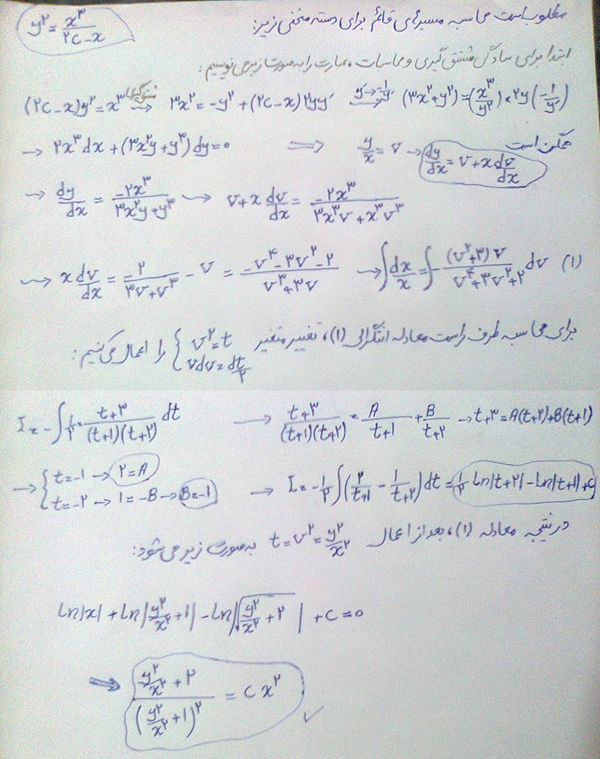 مطلوب است محاسبه مسیرهای قائم برای دسته منحنی زیر:
y² = x³/(۲c-x)
ابتدا برای سادگی مشتق گیری و محاسبات، عبارت را به صورت زیر می نویسیم:
(۲c-x)y² = x³ مشتق گیری → ۳x² = -y² + (۲c-x)۲yy' y'→-1/y' → (۳x²+y²) = (x³/y²) × ۲y(-1/y')
→ ۲x³dx + (۳x²y+y³)dy = ۰ ⇒ y/x = v → dy/dx = v + x dv/dx ممکن است
→ dy/dx = -۲x³/(۳x²y+y³) → v + x dv/dx = -۲x³/(۳x³v+x³v³)
→ x dv/dx = -۲/(۳v+v³) - v = (-v⁴-۳v²-۲)/(v³+۳v) → ∫dx/x = ∫-(v²+۳)v/(v⁴+۳v²+۲) dv (۱)
برای محاسبه طرف راست معادله انتگرالی (۱)، تغییر متغیر { v²=t , vdv=dt/۲ را اعمال می کنیم:
I = -∫ 1/۲ × (t+۳)/((t+1)(t+۲)) dt → (t+۳)/((t+1)(t+۲)) = A/(t+1) + B/(t+۲) → t+۳ = A(t+۲)+B(t+1)
→ { t=-1 → ۲=A , t=-۲ → 1=-B → B=-1 → I = -1/۲ ∫(۲/(t+1) - 1/(t+۲))dt = 1/۲ Ln|t+۲| - Ln|t+1| + c
در نتیجه معادله (۱)، بعد از اعمال t = v² = y²/x² به صورت زیر می شود:
Ln|x| + Ln|y²/x² + 1| - Ln|√(y²/x² + ۲)| + c = ۰
⇒ (y²/x² + ۲)/(y²/x² + 1)² = c x² ✓